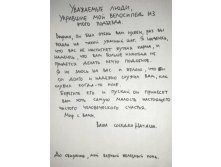 Уважаемые люди,
укравшие мой велосипед из
этого подъезда.
Видимо, он вам очень был нужен, раз вы
пошли на такой ужасный шаг. Я надеюсь,
что вас не настигнет кривая карма, и
надеюсь, что вам больше никогда не
придется делать нечто подобное.
Я не злюсь на вас и желаю, что бы
он долго и надежно служил вам, как
служил когда-то мне.
Берегите его и пускай он принесет
вам хоть самую малость настоящего
чистого человеческого счастья.
Мир с вами.
Ваша соседка Наташа.
До свидания, мой верный железный конь.